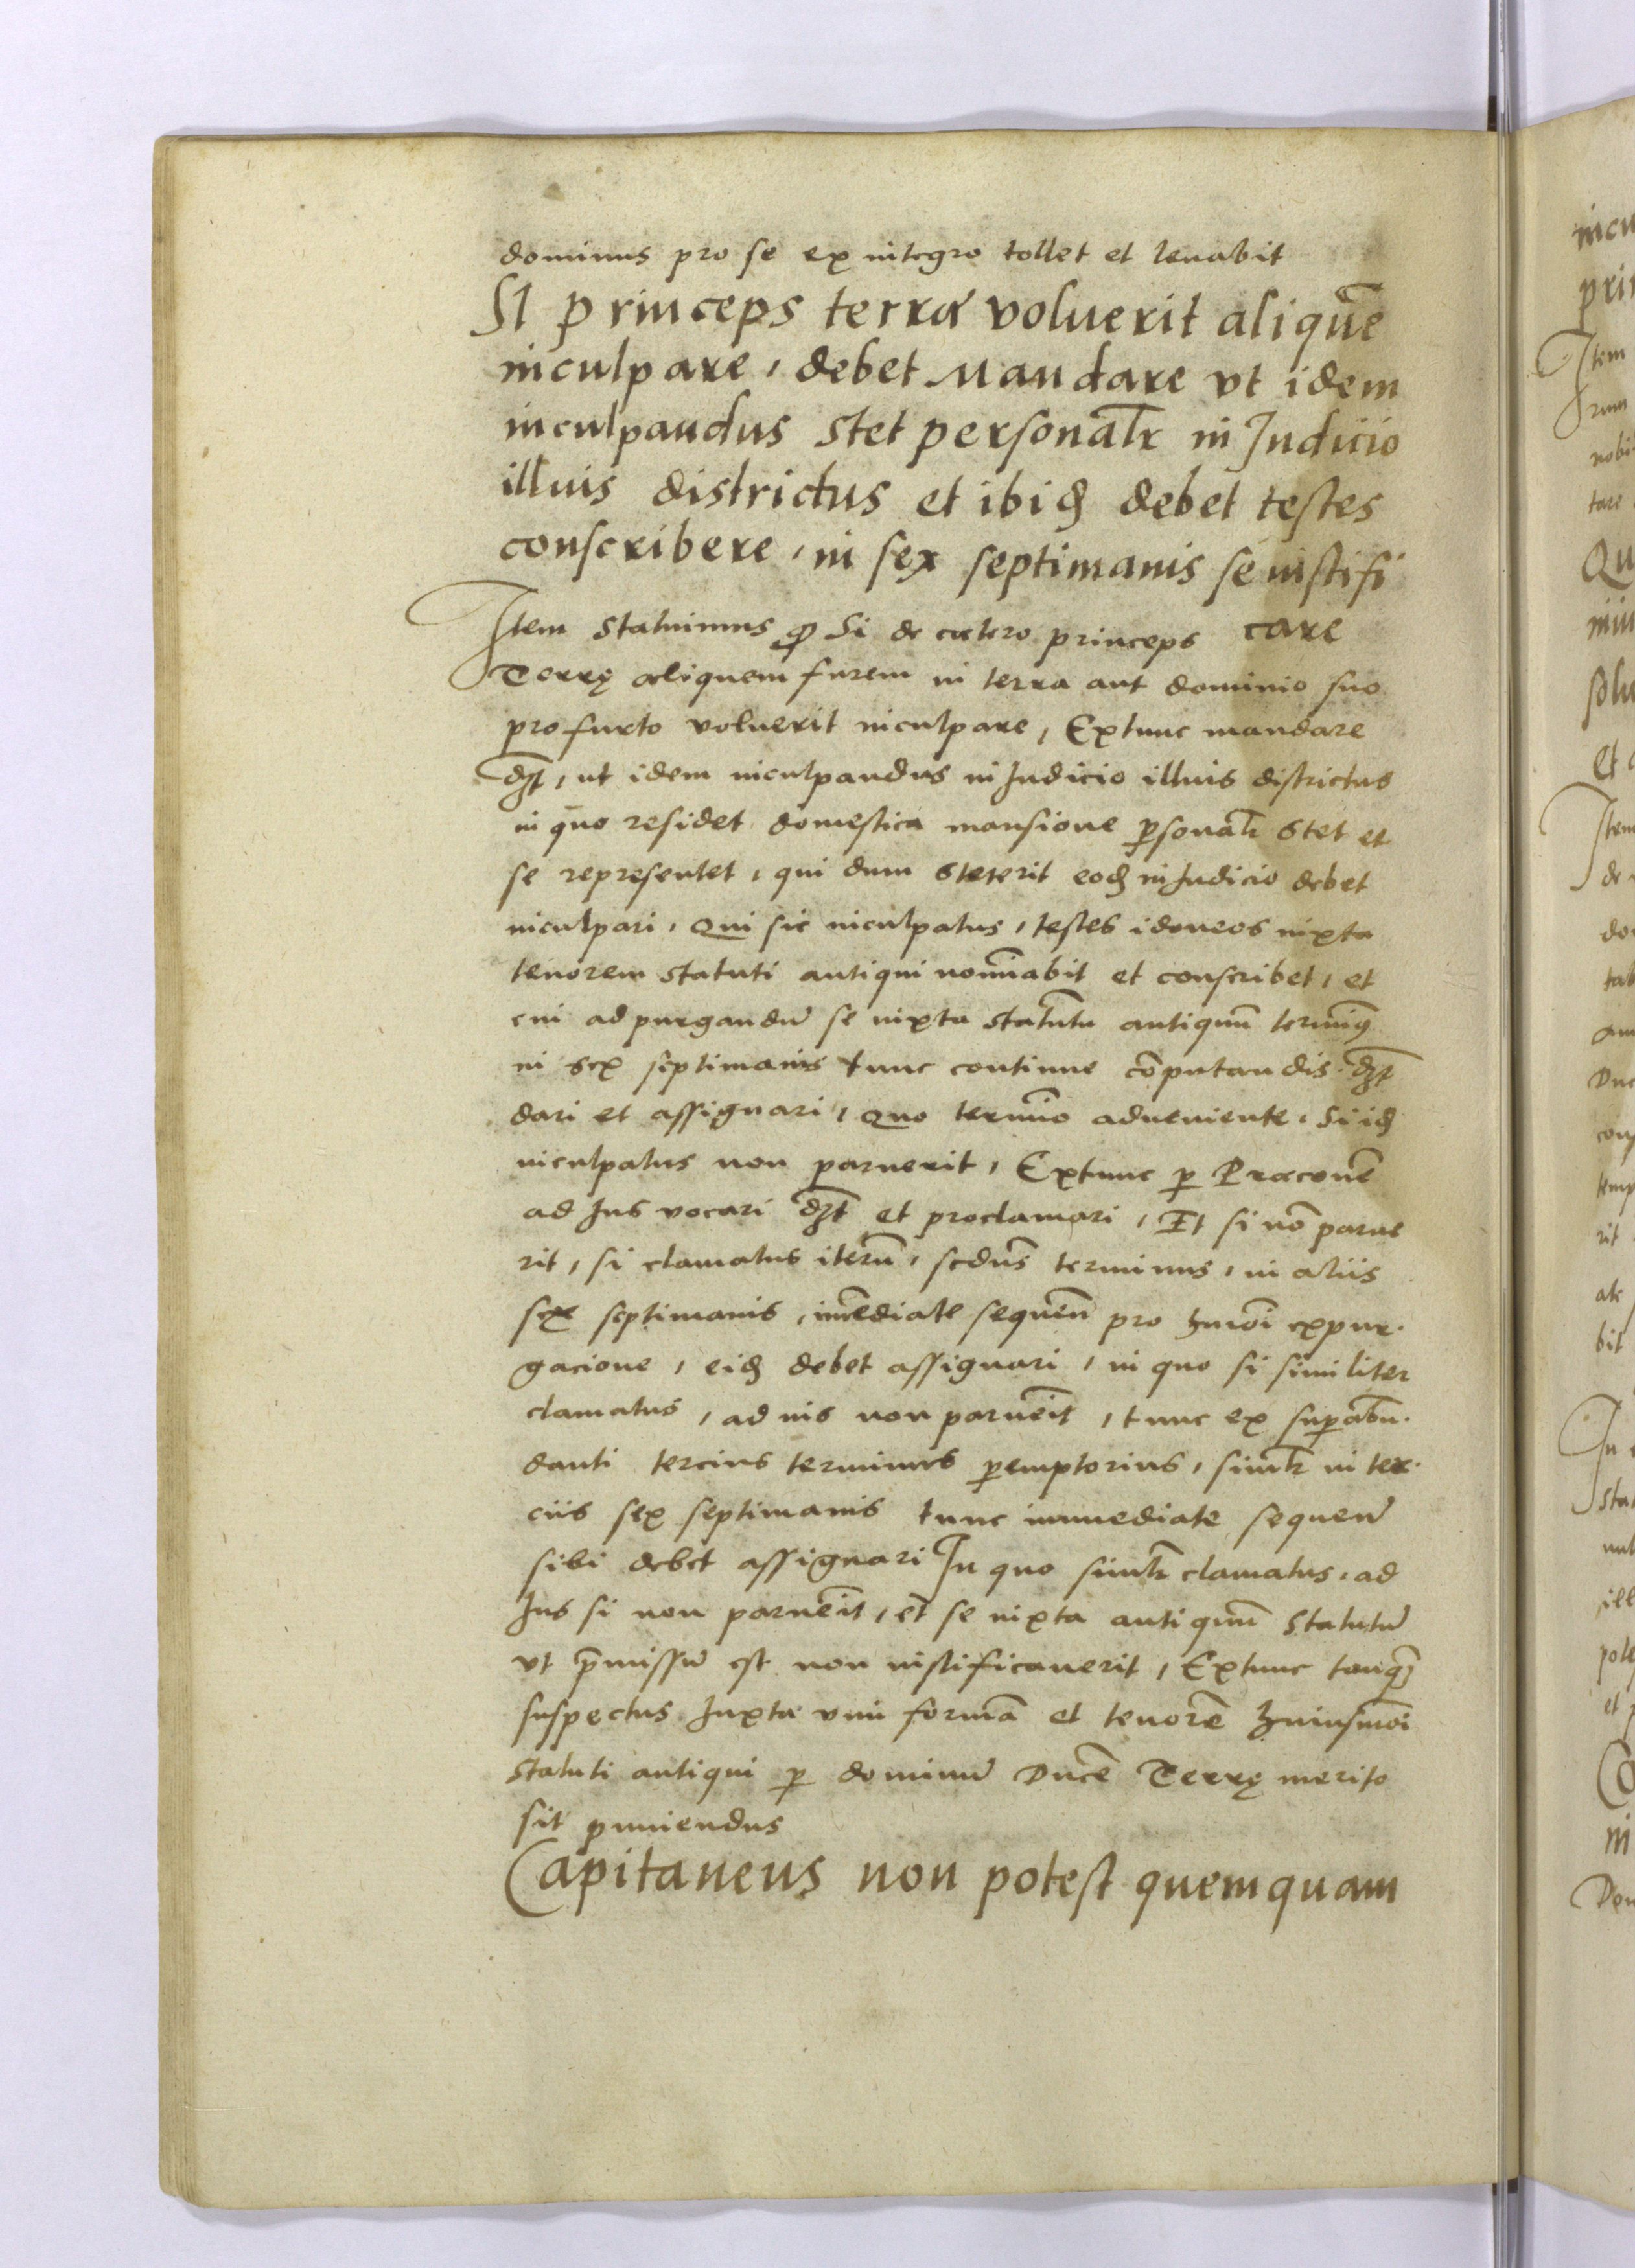 dominus pro se ex integro tollet et levabit
SI princeps terræ voluerit aliquē
inculpare, debet Mandare vt idem
inculpandus stet personalr̄ in Judicio
illius districtus et ibiđ debet testes
conscribere, in sex septimanis se iustifi
care
Item Statuimus ꝙ Si de cætero princeps
Terrę aliquem furem in terra aut dominio suo
pro furto voluerit inculpare, Extunc mandare
dꝫt, ut idem inculpandus in Judicio illius districtus
in quo residet domestica mansione ꝑsonalr̄ Stet et
se representet, qui dum steterit eodꝫ in Judicio debet
inculpari, Qui sic inculpatus, testes idoneos iuxta
tenorem statuti antiqui nom̄inabit et conscribet, et
cui ad purgandū se iuxta statutū antiquū termin9
in sex septimanis tunc continue cōputandis dꝫt
dari et assignari, Quo termīo adveniente, Si idꝫ
inculpatus non paruerit, Extunc ꝑ Præconē
ad Jus vocari dꝫt et proclamari, Et si nō parue
rit, si clamatus iterū, scdūs terminus, in aliis
sex septimanis, im̄ediate sequēn pro hmōi expur-
gacione, eidꝫ debet assignari, in quo si similiter
clamatus, ad ius non paruēit, tunc ex suꝑabū-
danti tercius terminus ꝑemptorius, similr̄ in ter-
ciis sex septimanis tunc immediate sequen̄
sibi debet assignari In quo similr̄ clamatus, ad
Jus si non paruēit, et se iuxta antiquū statutū
vt p̄missū est non iustificaverit, Extunc tanqꝫ
suspectus Juxta vim formā et tenorē huiusmōi
statuti antiqui ꝑ dominū Ducē Terrę merito
sit puniendus
Capitaneus non potest quemquam